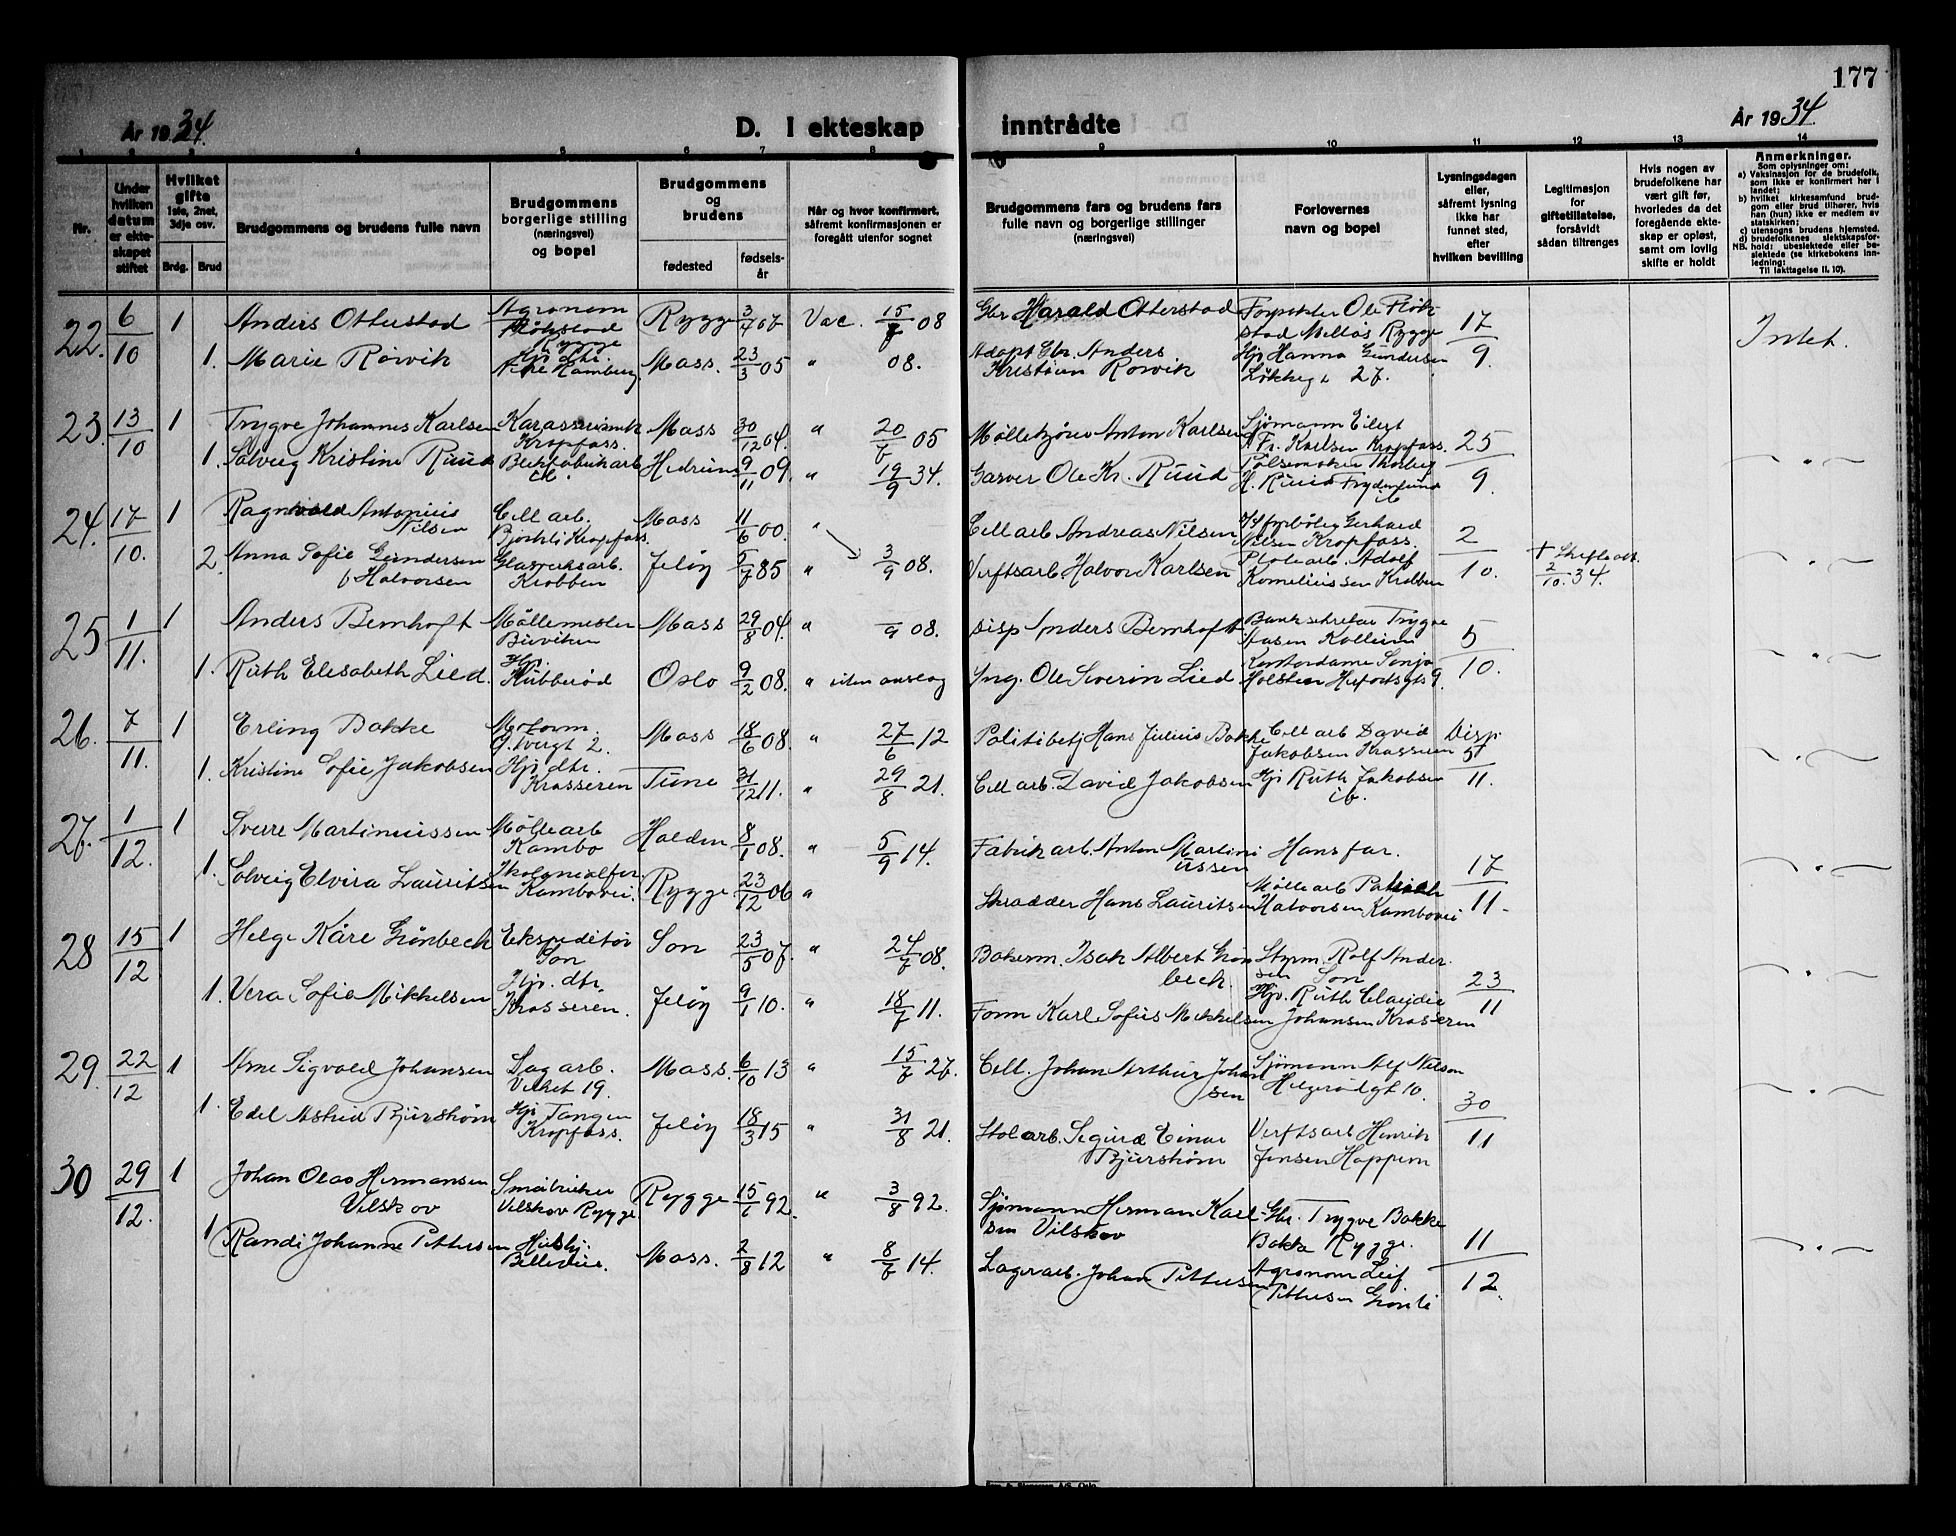 177
År 1934.
D. I ekteskap
inntrådte
År 1934.
1 2 3 4 5 6 7 8 9 10 11 12 13 14
Nr.
Under hvilken datum er ekteskapet stiftet
Hvilket gifte
1ste, 2net, 3dje osv.
Brdg. Brud
Brudgommens og brudens fulle navn
Brudgommens borgerlige stilling (næringsvei) og bopel
Brudgommens og brudens
fødested
fødsels-år
Når og hvor konfirmert, såfremt konfirmasjonen er foregått utenfor sognet
Brudgommens fars og brudens fars fulle navn og borgerlige stillinger (næringsvei)
Forlovernes navn og bopel
Lysningsdagen eller, såfremt lysning ikke har funnet sted, efter hvilken bevilling
Legitimasjon for giftetillatelse, forsåvidt sådan tiltrenges
Hvis nogen av brudefolkene har vært gift før, hvorledes da det foregående ekteskap er opløst, samt om lovlig skifte er holdt
Anmerkninger.
Som oplysninger om:
a) Vaksinasjon for de brudefolk, som ikke er konfirmert her i landet;
b) hvilket kirkesamfund brudgom eller brud tilhører, hvis han (hun) ikke er medlem av statskirken;
c) utensogns brudens hjemsted.
d) brudefolkenes slektskapsforhold: ubeslektede eller beslektede (se kirkebokens innledning:
NB.
Til iakttagelse II. 10).
22. 6/10 1 Anders Otterstad Agronom Rygge Rygge 3/7 07 Vac. 15/7 08 Gbr Harald Otterstad Ole Fløkstad Melløs Rygge 17/9 Intet.
1. Marie Rørvik Hj. dtr. Nedre Kamberg Moss. 23/3 05 " 08. Adopt Gbr. Anders Kristian Rørvik Hj Hanna Gundersen Løkkegt 27.
23. 13/10 1 Trygve Johannes Karlsen Kropfoss. Moss 30/12 04. " 20/6 05 Møllekjører Anton Karlsen Sjømann Eilert Fr. Karlsen Kropfoss. 25/9 — " —
1. Solveig Kristine Ruud Hedrum 9/11 09. " 19/9 34. Garver Ole Kr. Ruud Pølsemaker Thorleif H. Ruud
24. 17/10. 1 Ragnvald Antonius Nilsen Cell arb. Kropfoss. Moss 11/6 00. " Cell arb Andreas Nilsen Gerhard Nilsen Kropfoss. 2/10. — " —
2. Anna Sofie Gundersen f Halvorsen Glassverksarb. Krobben Jeløy 5/7 85 " 3/9 08. Verftsarb. Halvor Karlsen Adolf Korneliussen Krobben + Skifteatt. 2/10. 34.
25 1/11. 1 Anders Bernhoft Møllemester Biiviken Moss 29/8 04. " /9 08. Disp Anders Bernhoft Banksekretær Trygve Aasen Kolleim 5/10. — " —
1. Ruth Elisabeth Lied. Hj. Kubberød Oslo 9/2 08. " uten Ing. Ole Severin Lied Kontordame Sonja Holsten
26. 7/11. 1 Erling Bakke Moss 18/6 08. " 27/6 12 Politibetj Hans Julius Bakke Cell arb David Jakobsen Krasseren Disp. 5/11. — " —
1. Kristine Sofie Jakobsen Hj dtr. Krosseren Tune 31/12 11. " 29/8 21. Cell arb. David Jakobsen Hj Ruth Jakobsen ib.
27. 1/12. 1 Sverre Martinussen Møllearb Kambo Halden 8/1 08. " 5/9 14. Fabrikarb. Anton Martinussen Hans far. 17/11. — " —
1. Solveig Elvira Lauritsen Kambovei. Rygge 23/12 06 " Skredder Hans Lauritsen Møllearb Patrick Halvorsen Kambovei
28 15/12 1 Helge Kåre Grønbech Ekspeditør Son Son 23/5 07. " 24/7 08. Bakerm. Isak Albert Grønbech. Styrm. Rolf Andersen Son 23/11 — " —
1. Vera Sofie Mikkelsen Hj. dtr. Krosseren. Jeløy 9/1 10. " 18/7 11. Form Karl Sofus Mikkelsen Hj. Ruth Claudie Johansen Krosseren
29. 22/12 1 Arne Sigvald Johansen Sagarb. Verket 19. Moss. 6/10 13 " 15/7 27. Cell. Johan Arthur Johansen Sjømann Alf Nilsen Helgerødgt 10. 30/11 — " —
1. Edel Astrid Bjurstrøm Hj. Tangen Kropfoss. Jeløy 18/3 15 " 31/8 21. Stolarb. Sigurd Einar Bjurstrøm Verftsarb Henrik Jensen Hoppern
30 29/12. 1 Johan Olao Hermansen Vilskov Småbruker Vilskov Rygge. Rygge 15/6 92. " 3/8 92. Sjømann Herman Karlsen Vilskov Gbr. Trygve Bakke Bakke Rygge. 11/12 — " —
1 Randi Johanne Pettersen Hushj. Bellevue. Moss. 2/8 12 " 8/7 14. Lagerarb. Johan Pettersen Agronom Leif Pettersen Grønli